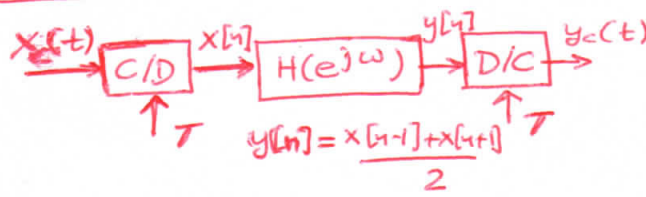 x_c(t) C/D x[n] H(e^jω) y[n] D/C y_c(t)
T T
y[n] = x[n-1]+x[n+1]
2